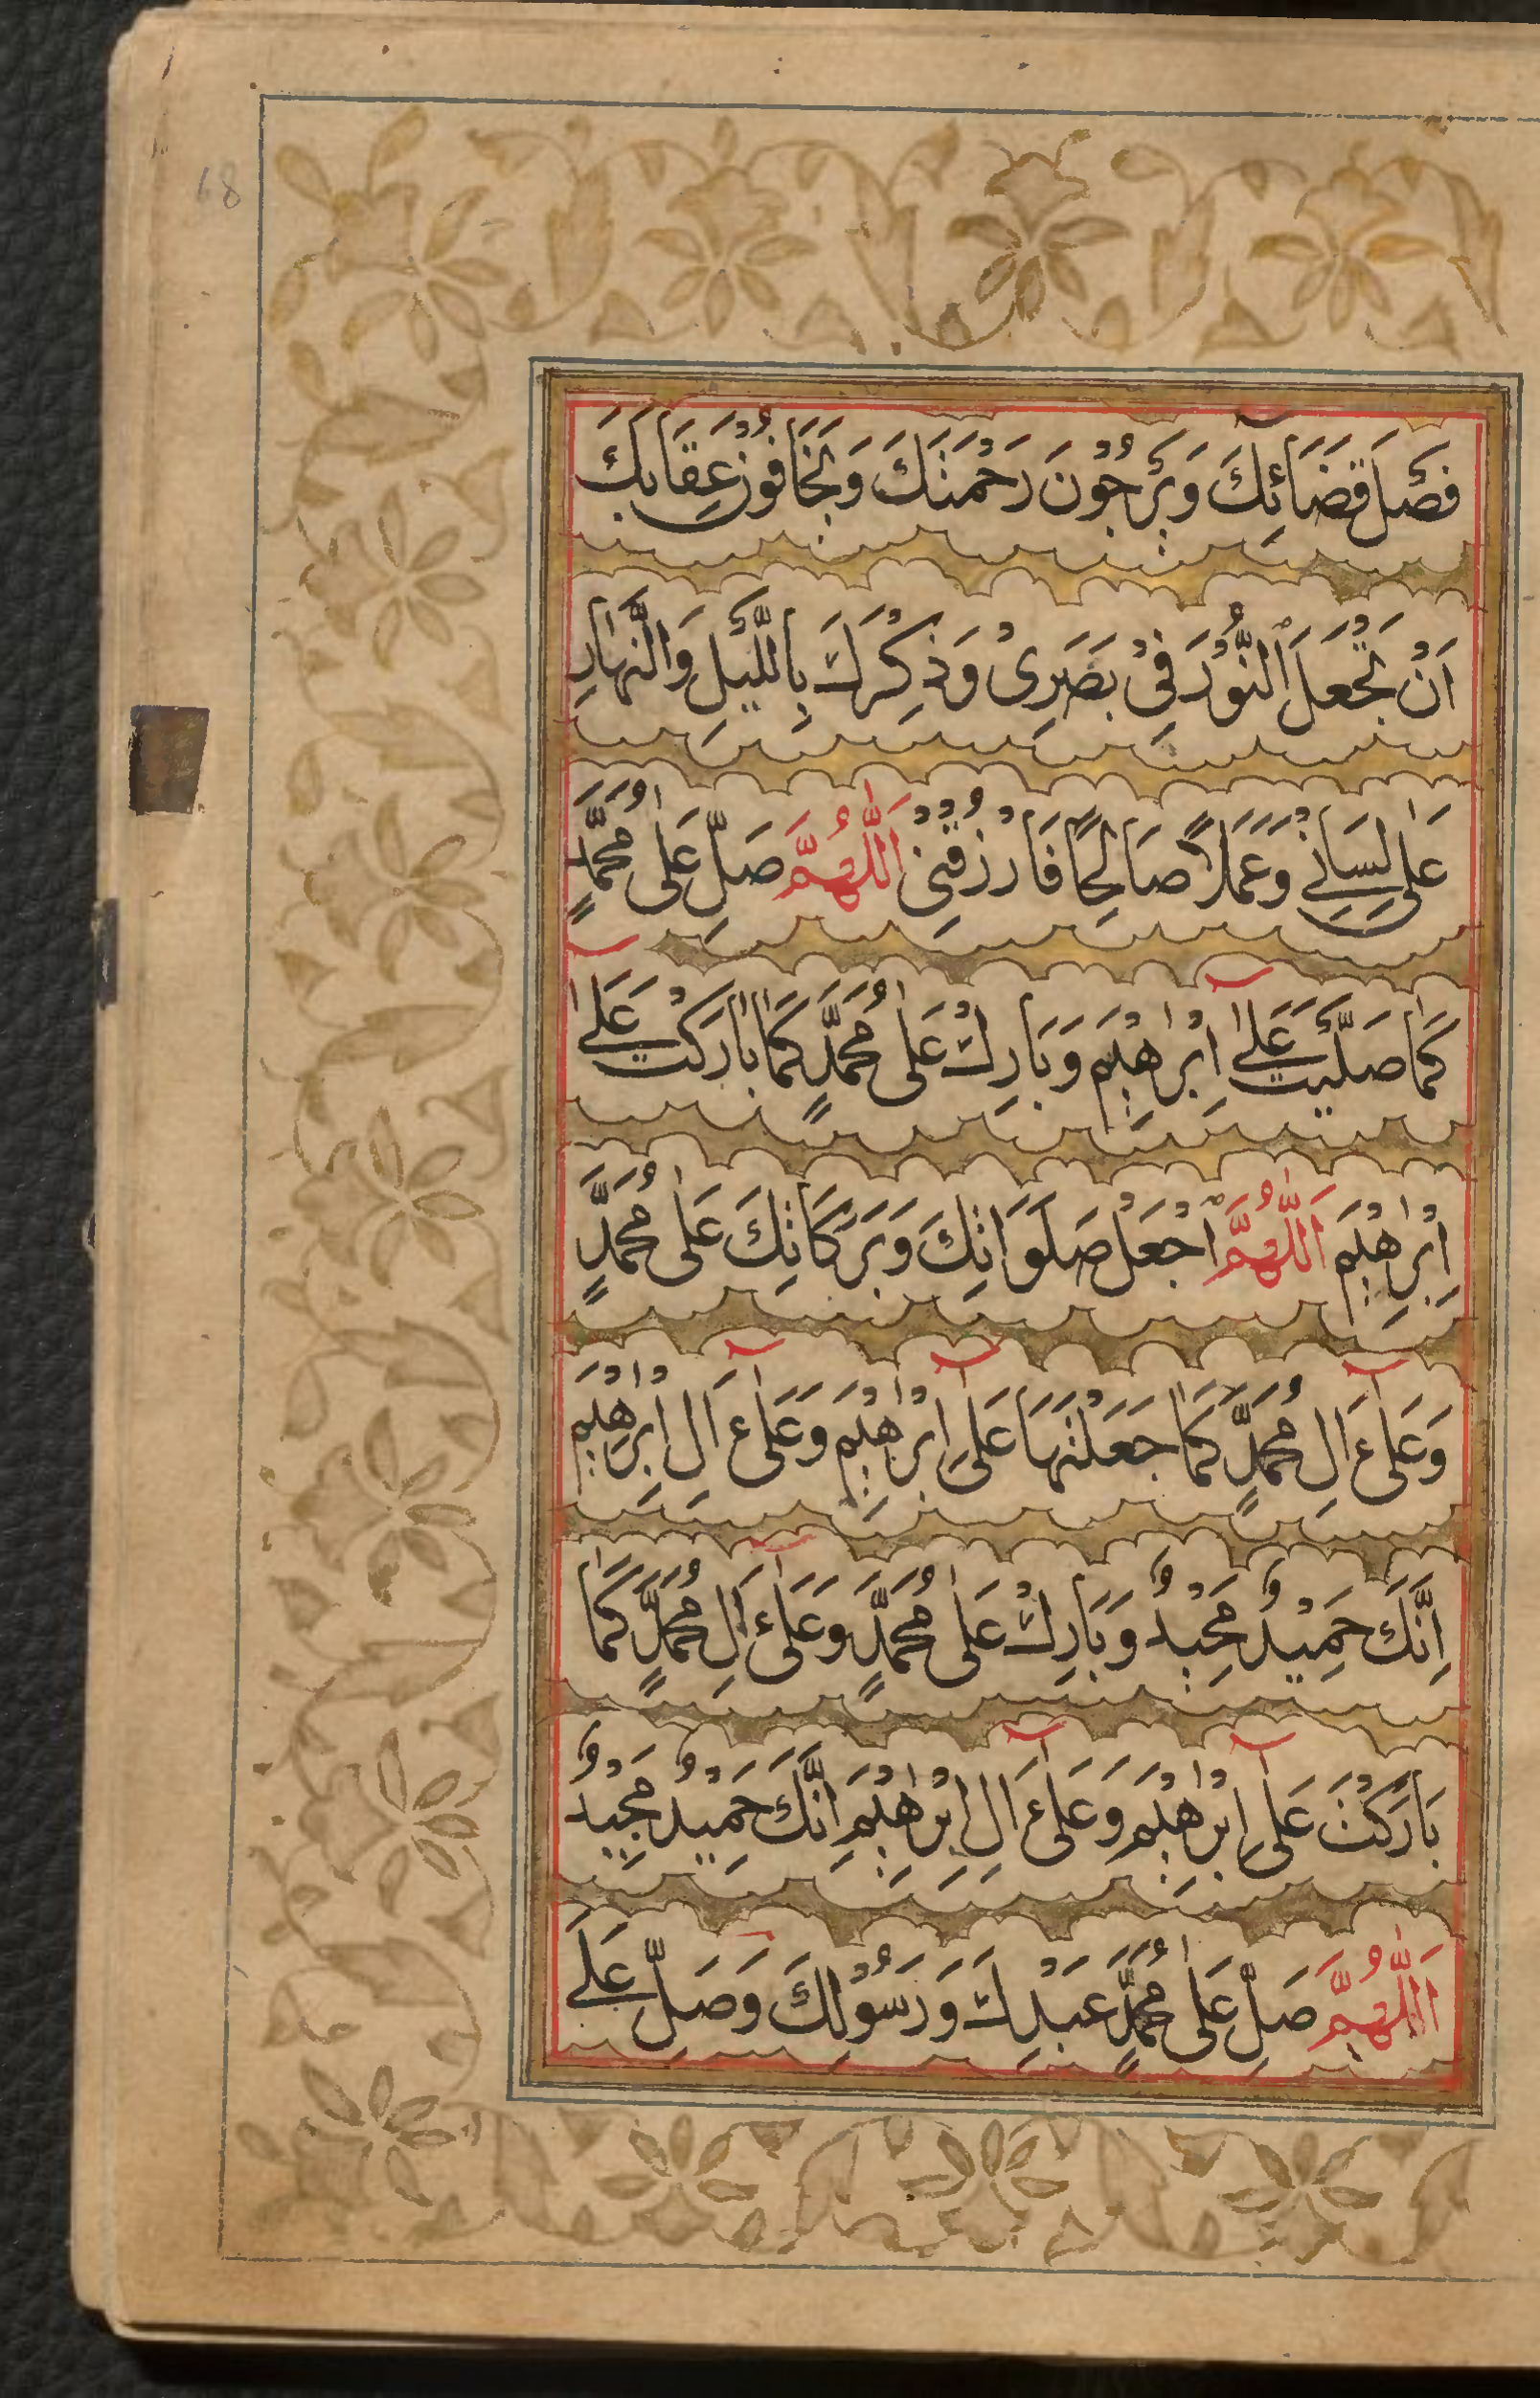 68
فَصْلَ قَضَائِكَ وَيَرْجُوْنَ رَحْمَتَكَ وَيَخَافُوْنَ عِقَابَكَ
اَنْ تَجْعَلَ النُّوْرَ فِيْ بَصَرِيْ وَذِكْرَكَ بِاللَّيْلِ وَالنَّهَارِ
عَلٰى لِسَانِيْ وَعَمَلًا صَالِحًا فَارْزُقْنِيْ اَللّٰهُمَّ صَلِّ عَلٰى مُحَمَّدٍ
كَمَا صَلَّيْتَ عَلٰٓى اِبْرٰهِيْمَ وَبَارِكْ عَلٰى مُحَمَّدٍ كَمَا بَارَكْتَ عَلٰٓى
اِبْرٰهِيْمَ اَللّٰهُمَّ اجْعَلْ صَلَوَاتِكَ وَبَرَكَاتِكَ عَلٰى مُحَمَّدٍ
وَعَلٰٓى ءَالِ مُحَمَّدٍ كَمَا جَعَلْتَهَا عَلٰٓى اِبْرٰهِيْمَ وَعَلٰٓى ءَالِ اِبْرٰهِيْمَ
اِنَّكَ حَمِيْدٌ مَجِيْدٌ وَبَارِكْ عَلٰى مُحَمَّدٍ وَعَلٰٓى ءَالِ مُحَمَّدٍ كَمَا
بَارَكْتَ عَلٰٓى اِبْرٰهِيْمَ وَعَلٰٓى ءَالِ اِبْرٰهِيْمَ اِنَّكَ حَمِيْدٌ مَجِيْدٌ
اَللّٰهُمَّ صَلِّ عَلٰى مُحَمَّدٍ عَبْدِكَ وَرَسُوْلِكَ وَصَلِّ عَلَى